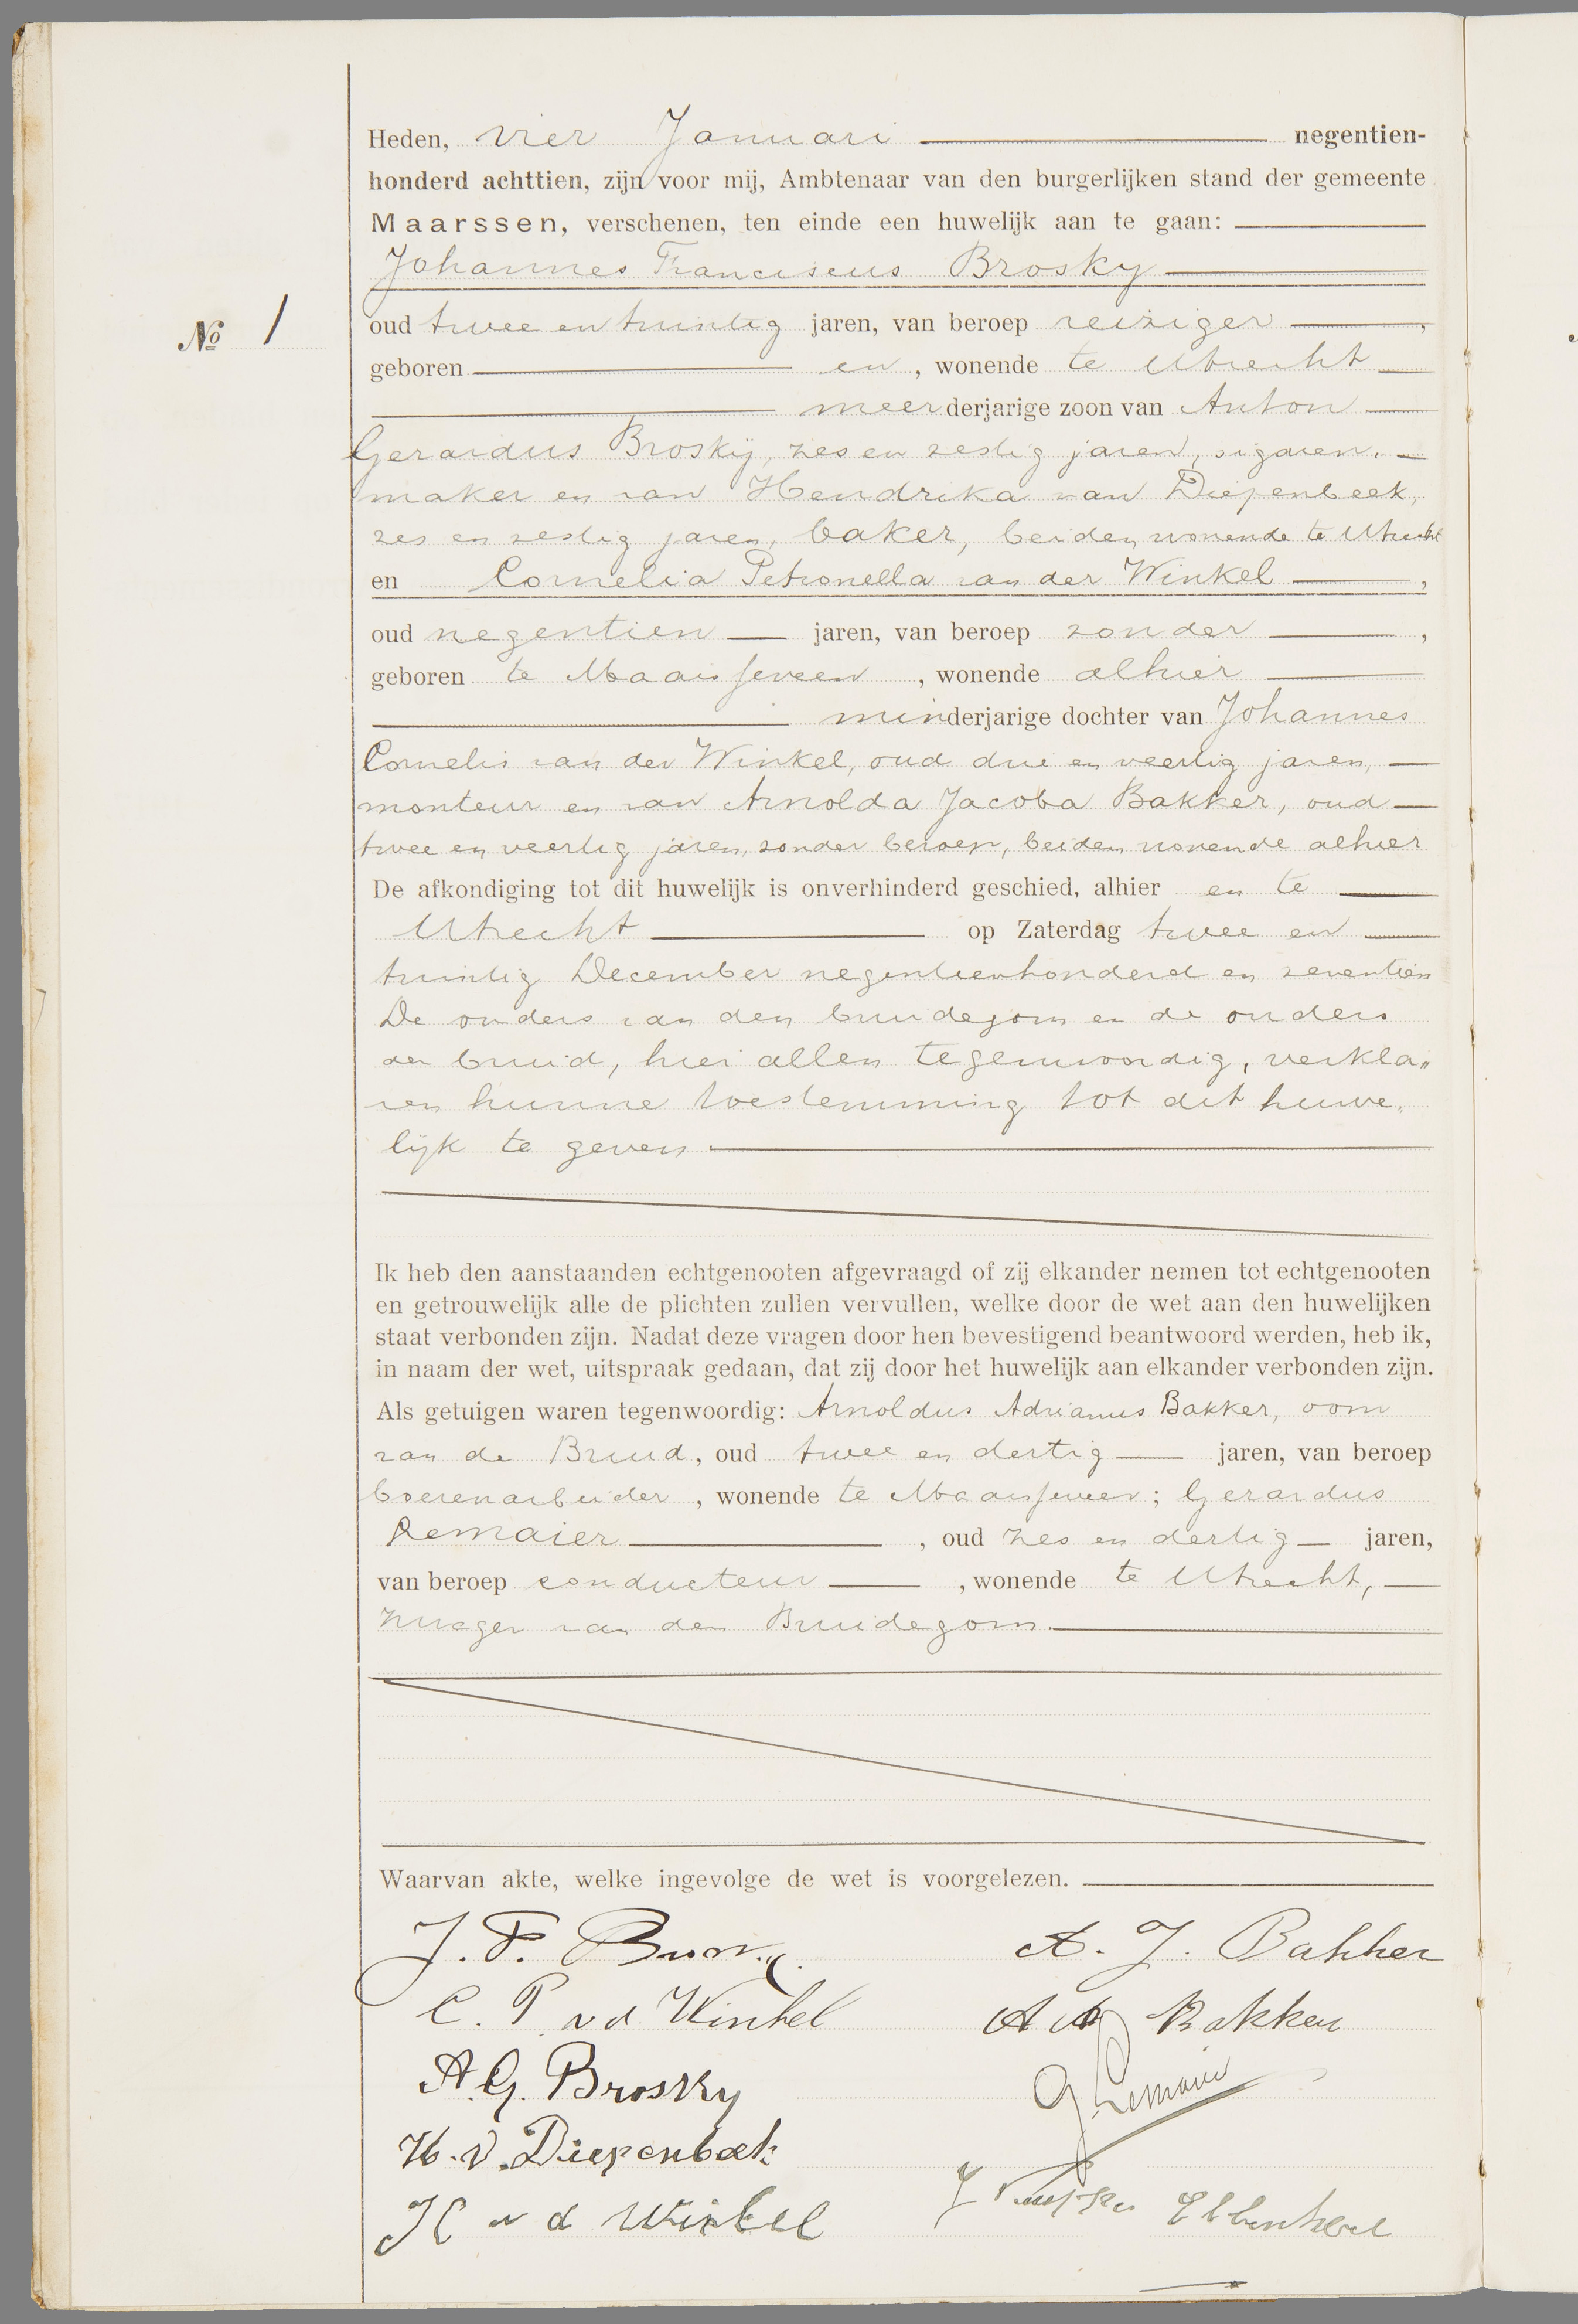 Heden, vier Januari negentien-
honderd achttien, zijn voor mij, Ambtenaar van den burgerlijken stand der gemeente
Maarssen, verschenen, ten einde een huwelijk aan te gaan:
Johannes Franciscus Brosky
No 1
oud twee en twintig jaren, van beroep reiziger,
geboren en, wonende te Utrecht
meerderjarige zoon van Anton
Gerardus Brosky, zes en zestig jaren, sigaren-
maker en van Hendrika van Diepenbeek,
zes en zestig jaren, baker, beiden wonende te Utrecht
en Cornelia Petronella van der Winkel,
oud negentien jaren, van beroep zonder,
geboren te Maarsseveen, wonende alhier
minderjarige dochter van Johannes
Cornelis van der Winkel, oud drie en veertig jaren,
monteur en van Arnolda Jacoba Bakker, oud
twee en veertig jaren, zonder beroep, beiden wonende alhier
De afkondiging tot dit huwelijk is onverhinderd geschied, alhier en te
Utrecht op Zaterdag twee en
twintig December negentienhonderd en zeventien
De ouders van den bruidegom en de ouders
der bruid, hier allen tegenwoordig, verkla„
ren hunne toestemming tot dit huwe„
lijk te geven.
Ik heb den aanstaanden echtgenooten afgevraagd of zij elkander nemen tot echtgenooten
en getrouwelijk alle de plichten zullen vervullen, welke door de wet aan den huwelijken
staat verbonden zijn. Nadat deze vragen door hen bevestigend beantwoord werden, heb ik,
in naam der wet, uitspraak gedaan, dat zij door het huwelijk aan elkander verbonden zijn.
Als getuigen waren tegenwoordig: Arnoldus Adrianus Bakker, oom
van de Bruid, oud twee en dertig jaren, van beroep
boerenarbeider, wonende te Maarsseveen; Gerardus
Remaier, oud zes en dertig jaren,
van beroep conducteur, wonende te Utrecht,
zwager van den Bruidegom.
Waarvan akte, welke ingevolge de wet is voorgelezen.
J. F. Brosky A. J. Bakker
C. P. v d Winkel A A Bakker
A. G. Brosky G Remaier
H. v. Diepenbeek
J C v d Winkel